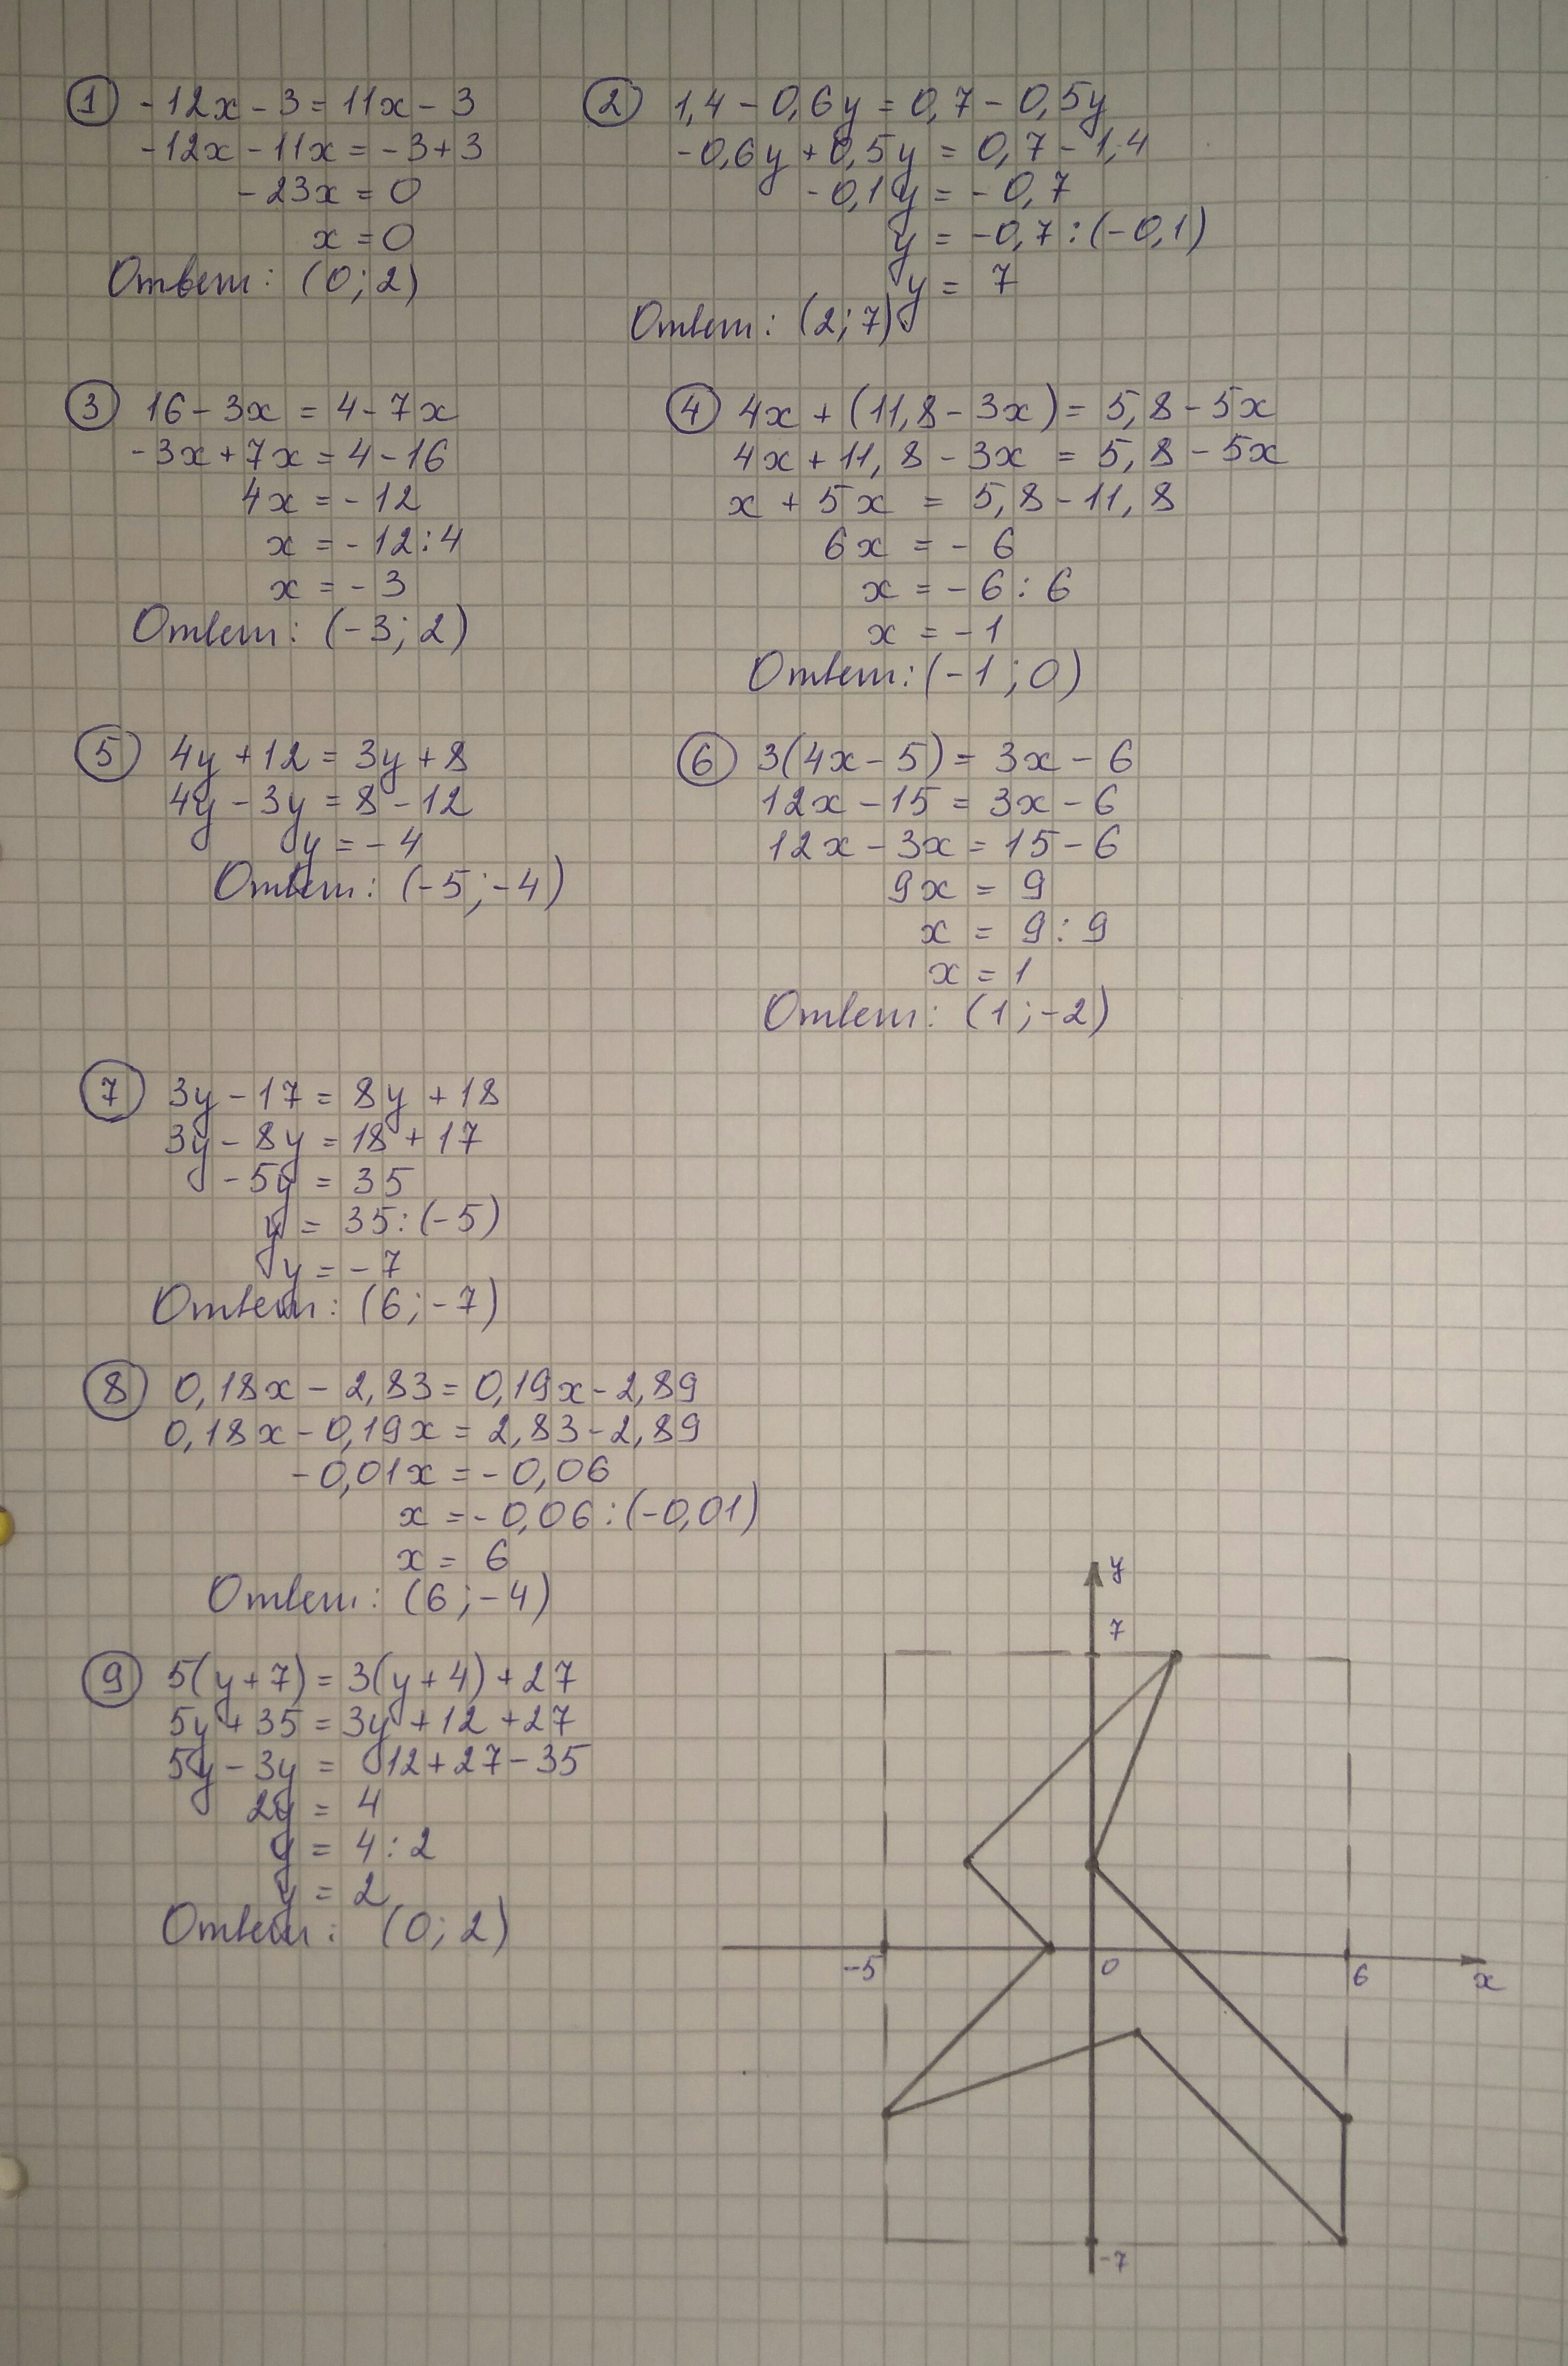 ① -12x - 3 = 11x - 3
-12x - 11x = -3+3
-23x = 0
x = 0
Ответ: (0; 2)
② 1,4 - 0,6y = 0,7 - 0,5y
-0,6y + 0,5y = 0,7 - 1,4
-0,1y = -0,7
y = -0,7 : (-0,1)
y = 7
Ответ: (2; 7)
③ 16 - 3x = 4 - 7x
-3x + 7x = 4 - 16
4x = -12
x = -12 : 4
x = -3
Ответ: (-3; 2)
④ 4x + (11,8 - 3x) = 5,8 - 5x
4x + 11,8 - 3x = 5,8 - 5x
x + 5x = 5,8 - 11,8
6x = -6
x = -6 : 6
x = -1
Ответ: (-1; 0)
⑤ 4y + 12 = 3y + 8
4y - 3y = 8 - 12
y = -4
Ответ: (-5; -4)
⑥ 3(4x - 5) = 3x - 6
12x - 15 = 3x - 6
12x - 3x = 15 - 6
9x = 9
x = 9 : 9
x = 1
Ответ: (1; -2)
⑦ 3y - 17 = 8y + 18
3y - 8y = 18 + 17
-5y = 35
y = 35 : (-5)
y = -7
Ответ: (6; -7)
⑧ 0,18x - 2,83 = 0,19x - 2,89
0,18x - 0,19x = 2,83 - 2,89
-0,01x = -0,06
x = -0,06 : (-0,01)
x = 6
Ответ: (6; -4)
⑨ 5(y + 7) = 3(y + 4) + 27
5y + 35 = 3y + 12 + 27
5y - 3y = 12 + 27 - 35
2y = 4
y = 4 : 2
y = 2
Ответ: (0; 2)
y
7
-5 0 6 x
-7